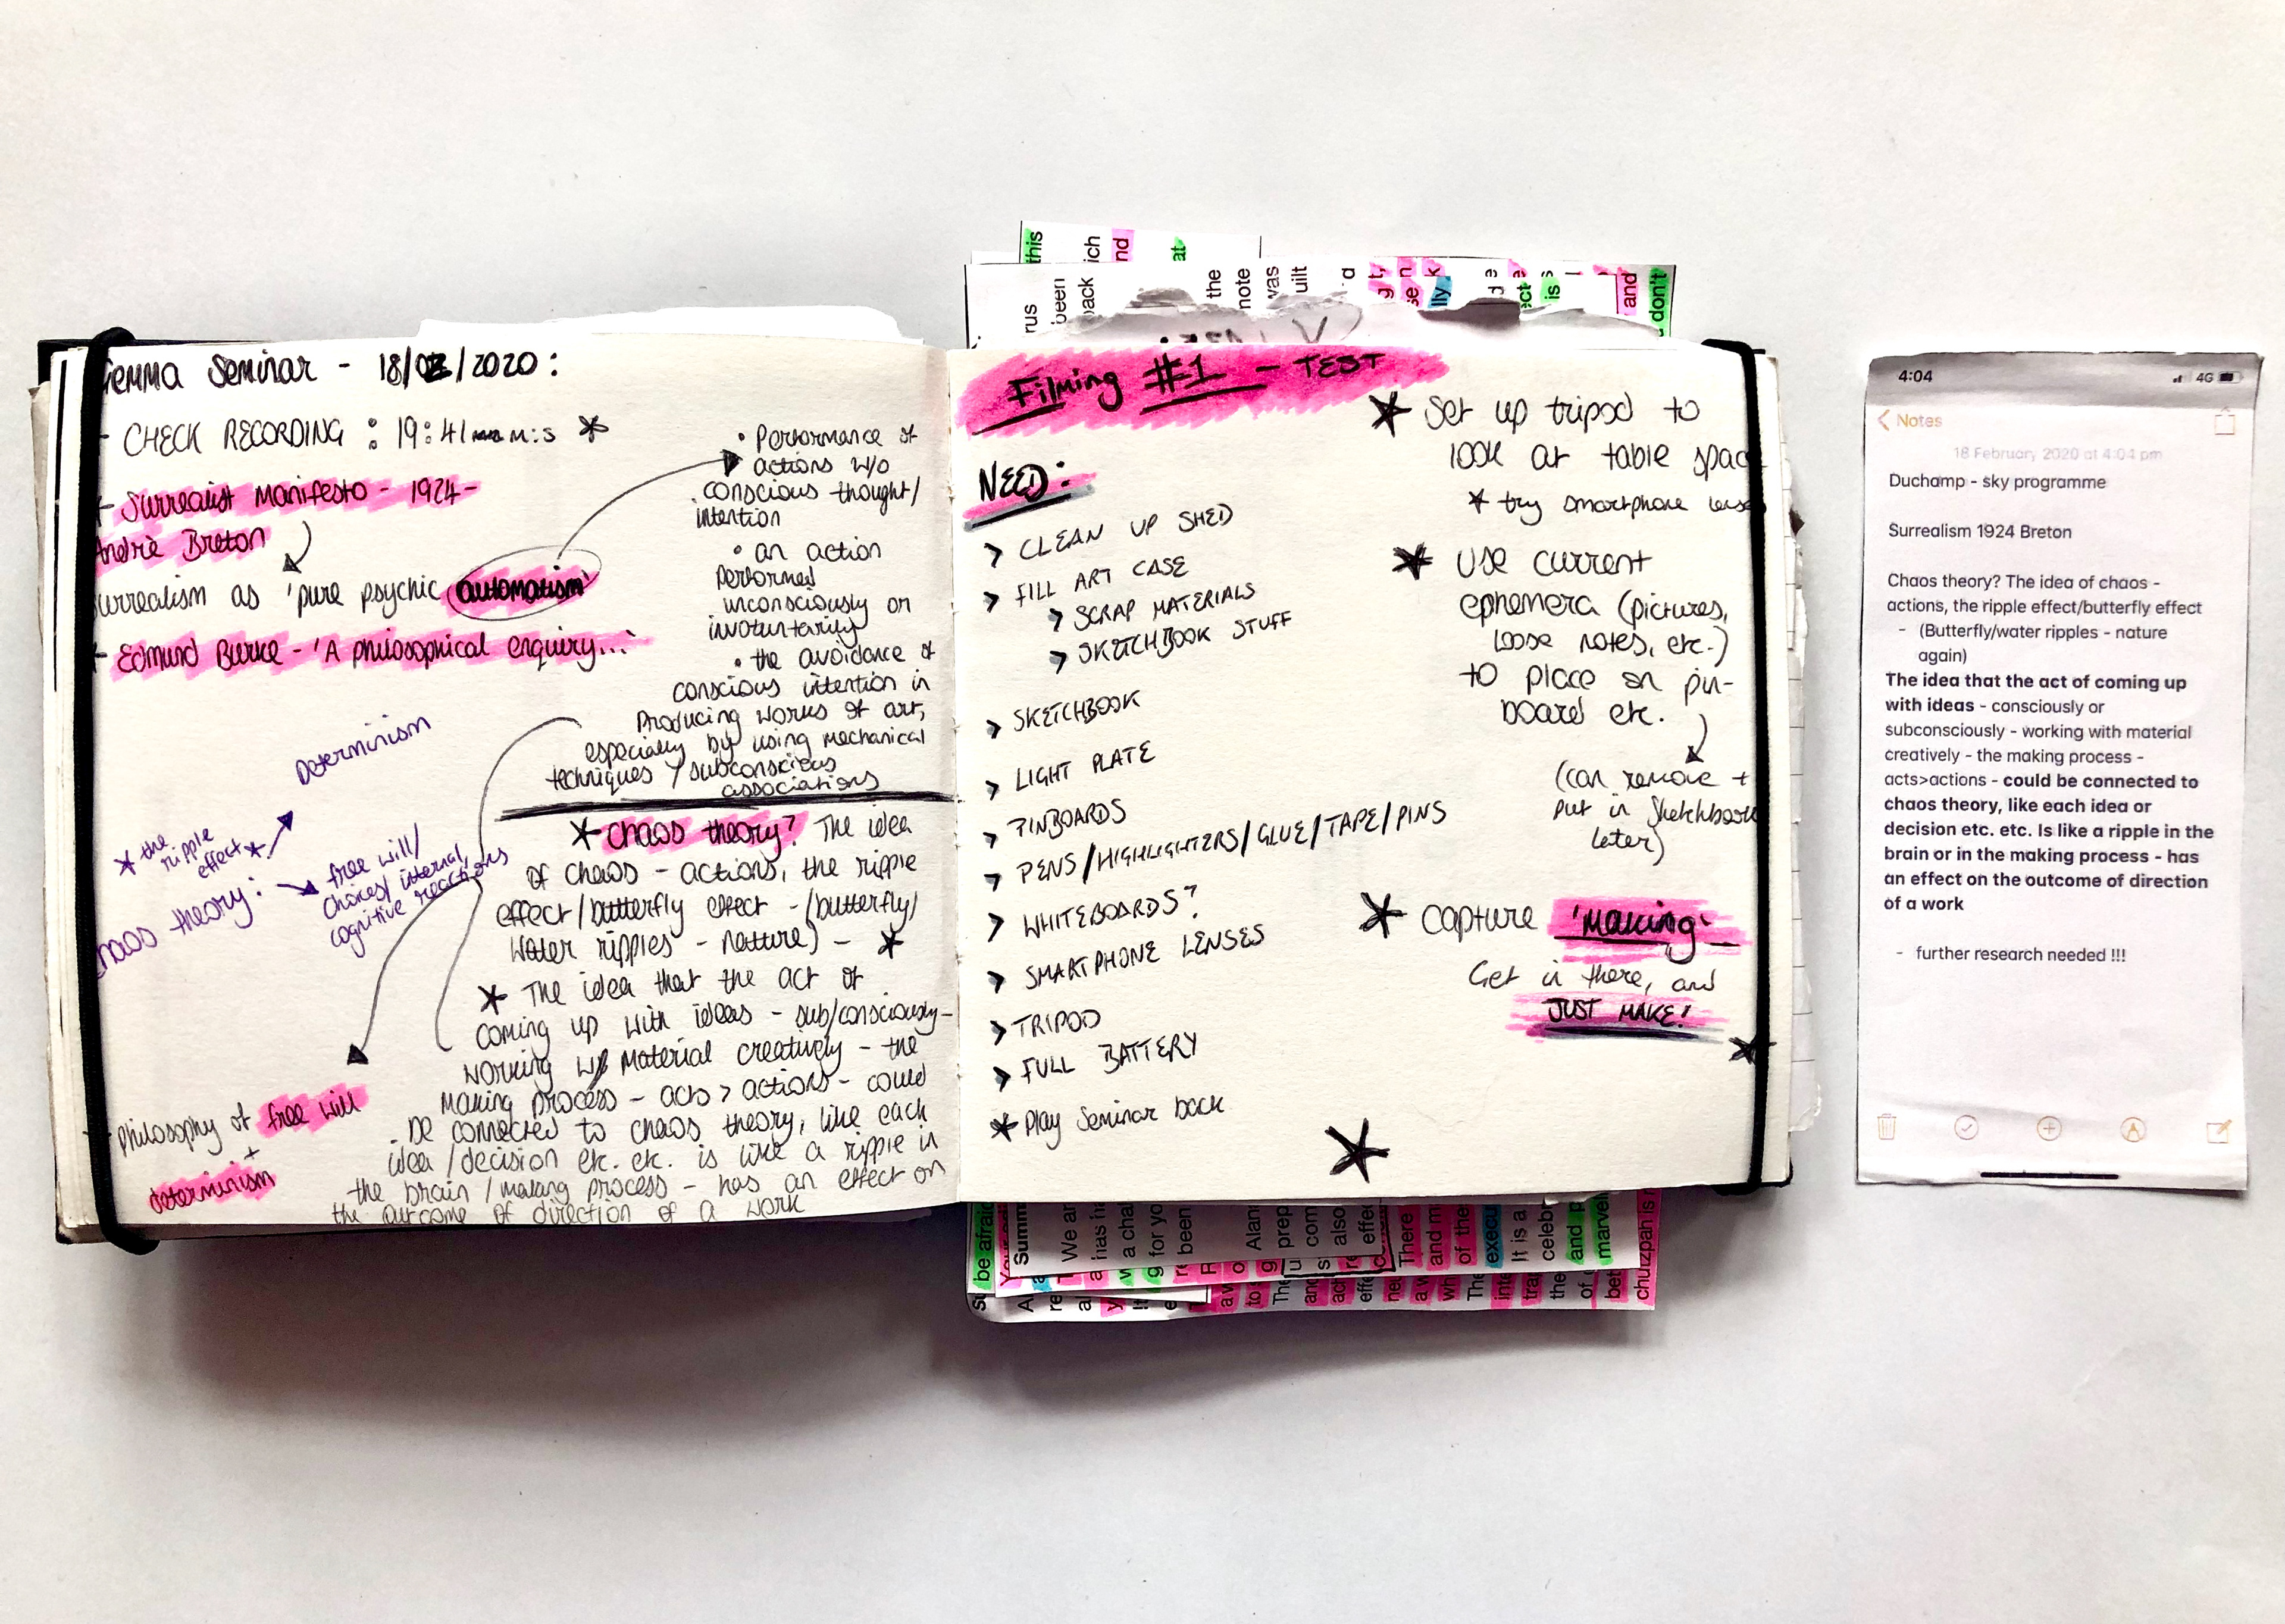 Gemma Seminar - 18/02/2020:
- CHECK RECORDING : 19:41 m:s *
+ Surrealist Manifesto - 1924 -
André Breton
surrealism as 'pure psychic automatism'
* Edmund Burke - 'A philosophical enquiry...'
• Performance of
actions w/o
conscious thought/
intention
• an action
performed
unconsciously or
involuntarily
• the avoidance of
conscious intention in
producing works of art,
especially by using mechanical
techniques / subconscious
associations
Determinism
* the
ripple
effect *
chaos theory:
free will/
choices/ internal,
cognitive reactions
* Chaos theory? The idea
of chaos - actions, the ripple
effect/butterfly effect - (butterfly/
water ripples - nature) - *
* The idea that the act of
coming up with ideas - sub/consciously -
working w/ material creatively - the
making process - acts > actions - could
be connected to chaos theory, like each
idea/decision etc. etc. is like a ripple in
the brain / making process - has an effect on
the outcome of direction of a work
philosophy of free will
+
determinism
Filming #1 - TEST
NEED:
> CLEAN UP SHED
> FILL ART CASE
> SCRAP MATERIALS
> SKETCHBOOK STUFF
> SKETCHBOOK
> LIGHT PLATE
> PINBOARDS
> PENS/HIGHLIGHTERS/GLUE/TAPE/PINS
> WHITEBOARDS?
> SMARTPHONE LENSES
> TRIPOD
> FULL BATTERY
* Play Seminar back
* Set up tripod to
look at table space
* try smartphone lenses
* Use current
ephemera (pictures,
loose notes, etc.)
to place on pin-
board etc.
(can remove +
put in sketchbook
later)
* Capture 'Making'
Get in there, and
JUST MAKE!
this
ich
nd
at
rus
been
back
the
note
was
uilt
and
don't
be afraid
Summ
We ar
a cha
g for yo
been
Alan
prep
com
also
effec
There
and m
of the
execu
It is a
celebr
and p
marvel
chutzpah is
4:04
4G
Notes
18 February 2020 at 4:04 pm
Duchamp - sky programme
Surrealism 1924 Breton
Chaos theory? The idea of chaos -
actions, the ripple effect/butterfly effect
- (Butterfly/water ripples - nature
again)
The idea that the act of coming up
with ideas - consciously or
subconsciously - working with material
creatively - the making process -
acts>actions - could be connected to
chaos theory, like each idea or
decision etc. etc. Is like a ripple in the
brain or in the making process - has
an effect on the outcome of direction
of a work
- further research needed !!!